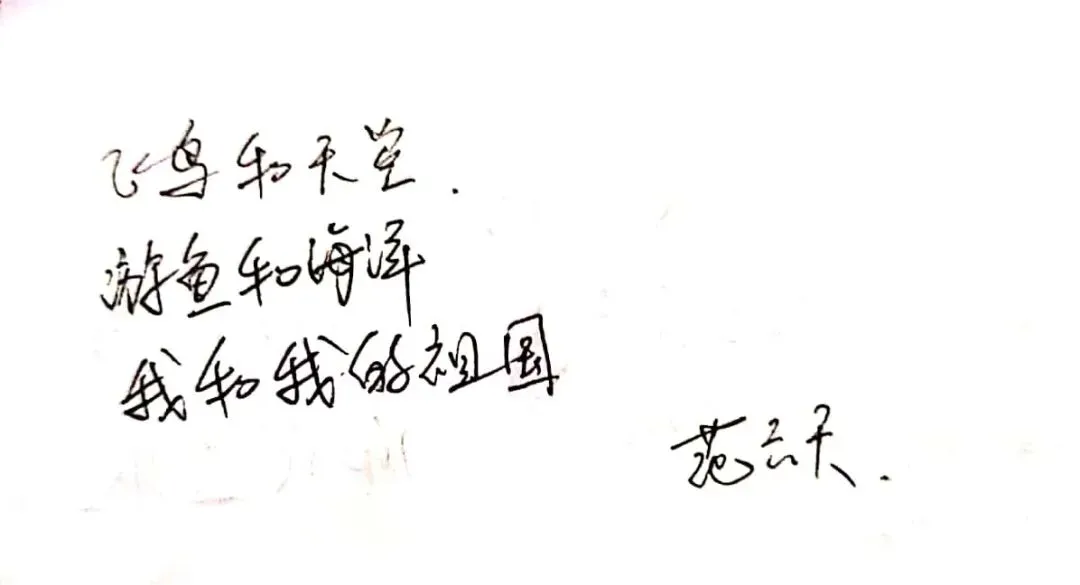 飞鸟和天空.
游鱼和海洋
我和我的祖国
范云天.